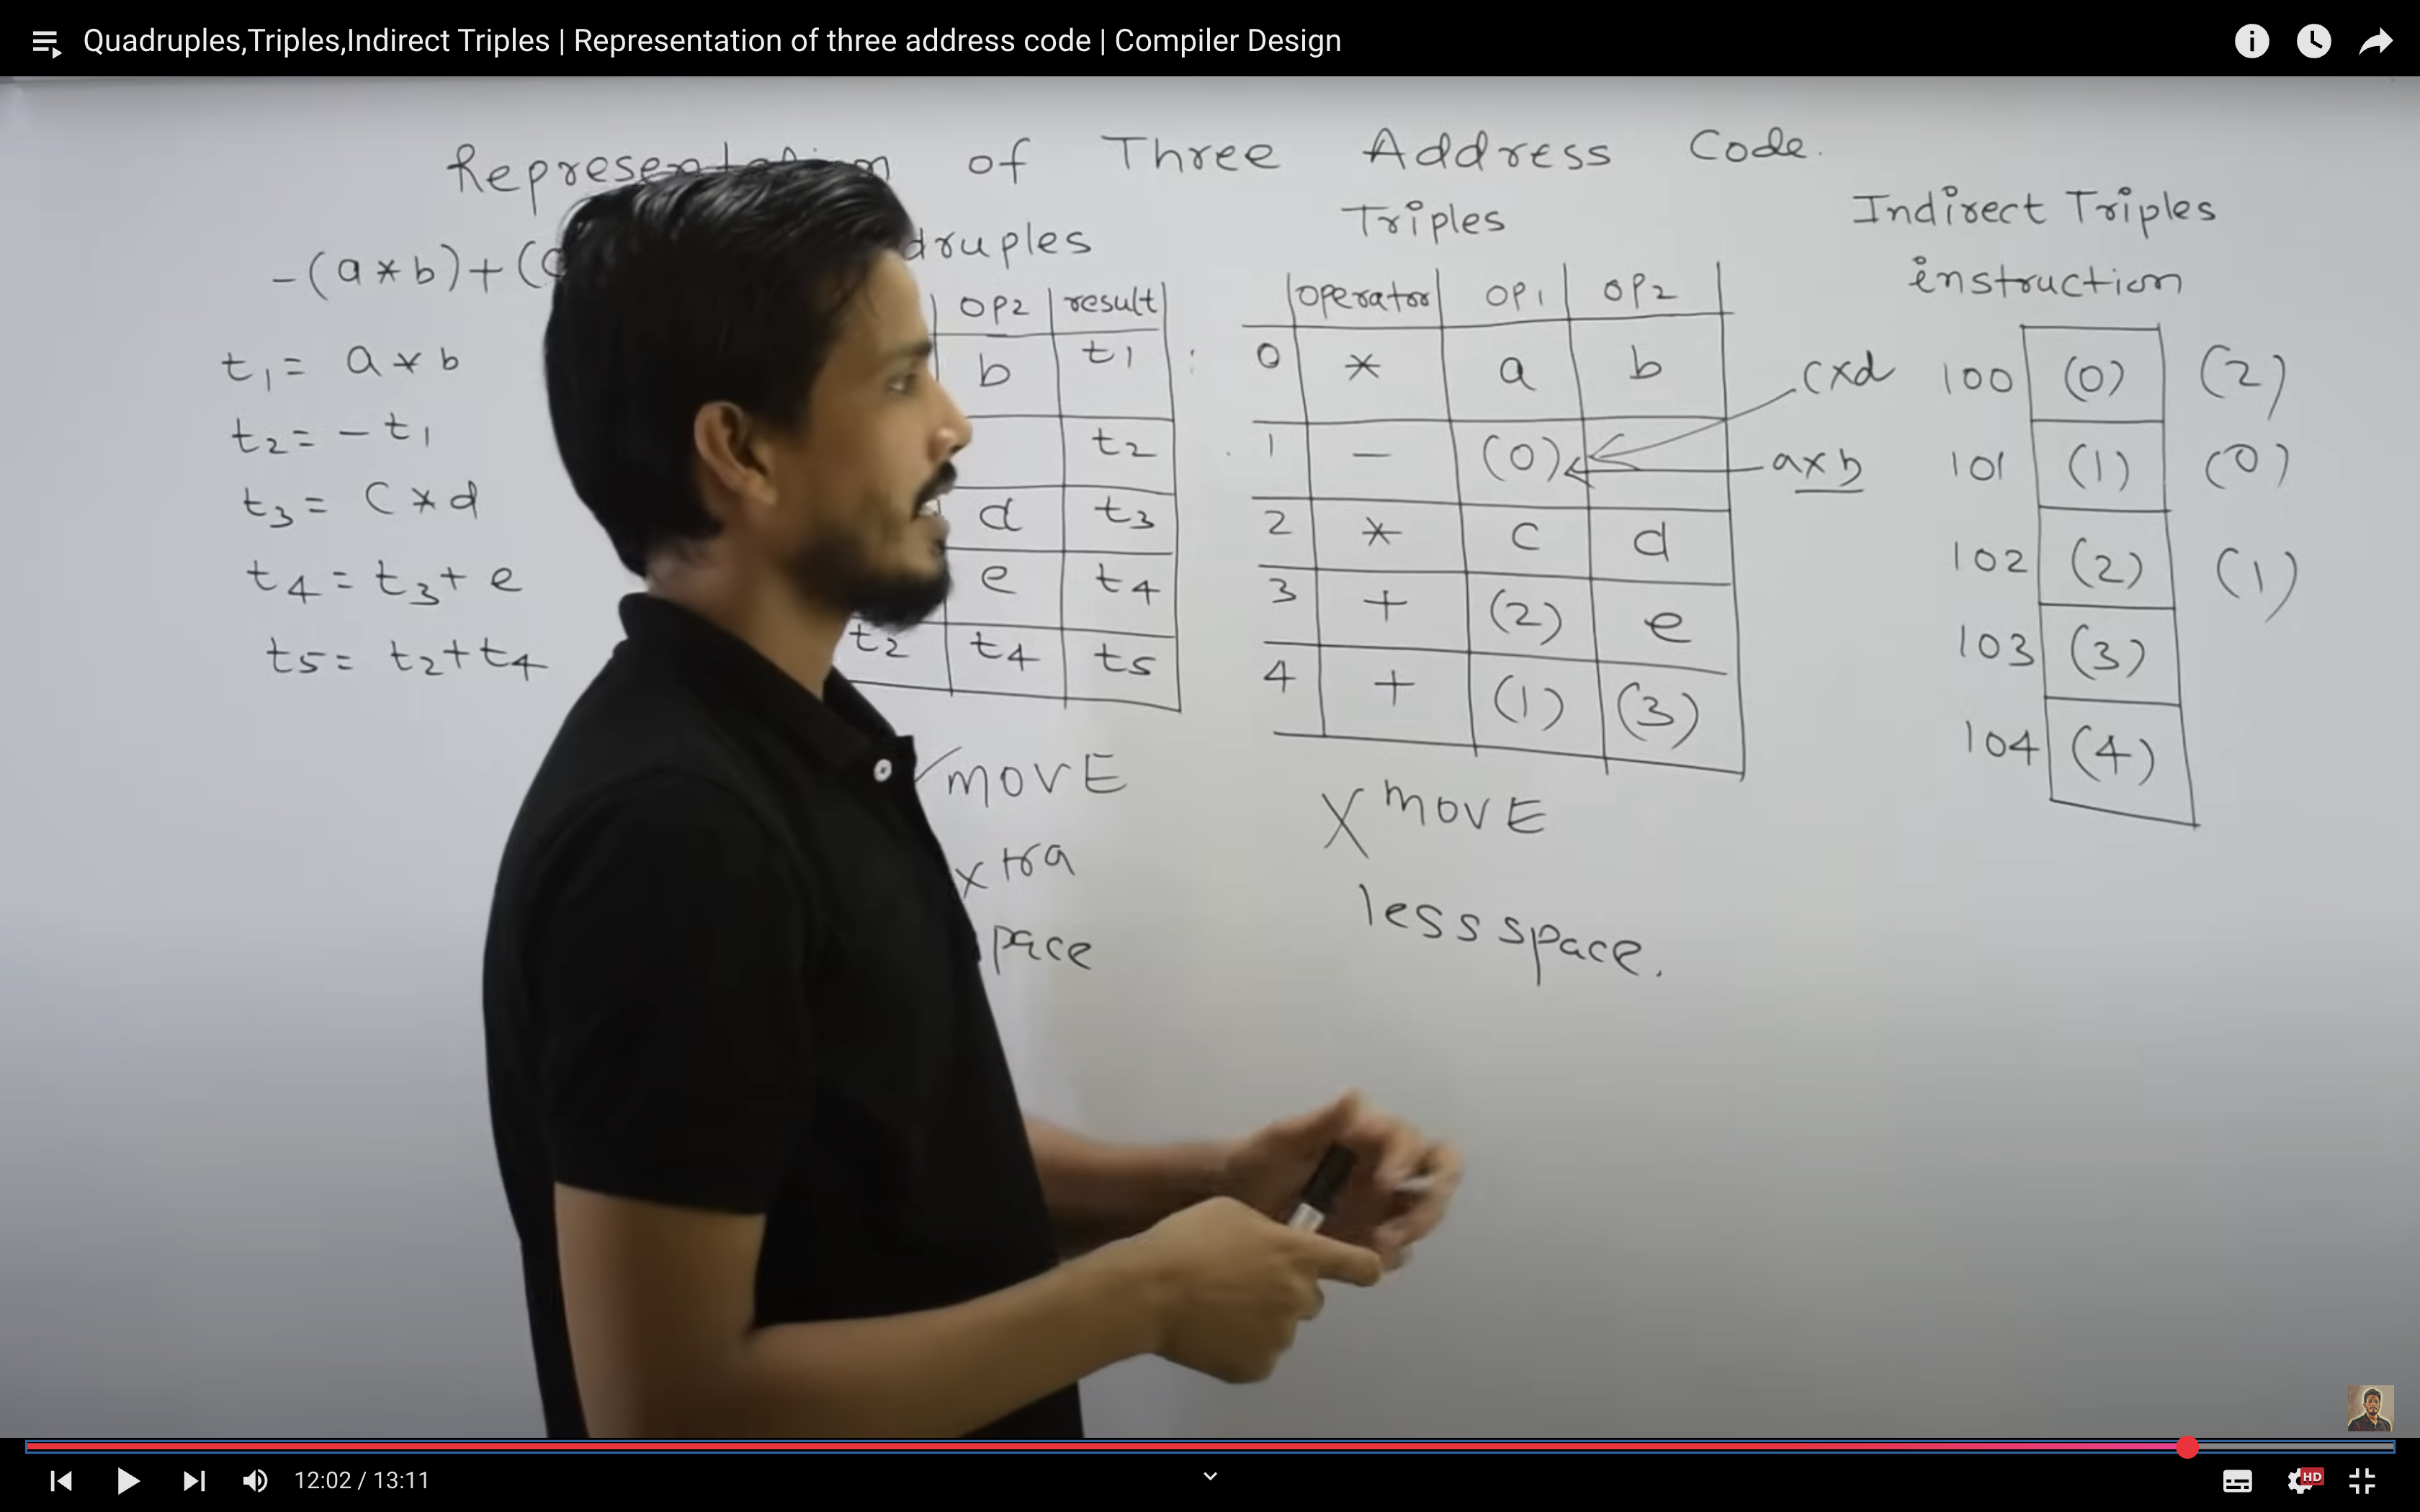 Quadruples,Triples,Indirect Triples | Representation of three address code | Compiler Design
of Three Address Code.
-(a*b)+(
t1 = a * b
t2 = - t1
t3 = c * d
t4 = t3 + e
t5 = t2 + t4
druples
op2 result
b t1
t2
d t3
e t4
t2 t4 t5
MOVE
xtra
pace
Triples
operator op1 op2
0 * a b
1 - (0)
2 * c d
3 + (2) e
4 + (1) (3)
cxd
axb
X MOVE
less space.
Indirect Triples
instruction
100 (0) (2)
101 (1) (0)
102 (2) (1)
103 (3)
104 (4)
12:02 / 13:11
HD